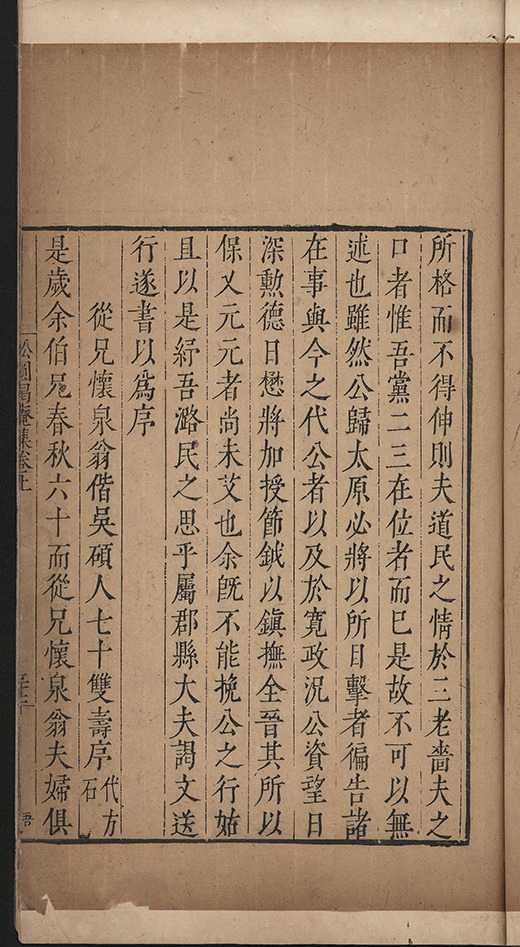 所格而不得伸則夫道民之情於三老嗇夫之
口者惟吾黨二三在位者而已是故不可以無
述也雖然公歸太原必將以所目擊者徧告諸
在事與今之代公者以及於寬政況公資望日
深勳德日懋將加授節鉞以鎮撫全晉其所以
保乂元元者尚未艾也余旣不能挽公之行姑
且以是紓吾潞民之思乎屬郡縣大夫謁文送
行遂書以爲序
從兄懷泉翁偕吳碩人七十雙壽序代方石
是歲余伯兄春秋六十而從兄懷泉翁夫婦俱
松圓偈庵集卷上